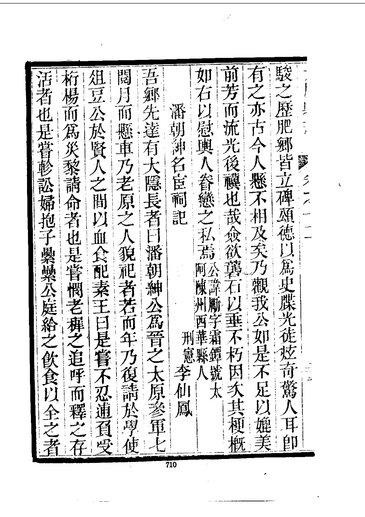 駿之歷肥鄉皆立碑頌德以爲史牒光徒炫奇驚人耳卽
有之亦古今人懸不相及矣乃觀我公如是不足以媲美
前芳而流光後禩也哉僉欲蕘石以垂不朽因次其梗概
如右以慰輿人眷戀之私焉 公諱 字 鐔號太
阿陳州西華縣人
潘朝紳名宦祠記
刑憲 李仙鳳
吾鄉先達有大隱長者曰潘朝紳公爲晉之太原參軍七
閱月而懸車乃老原之人貌祀者若而年乃復請於學使
俎豆公於賢人之間以血食配素王曰是嘗不忍逋負受
桁楊而爲災黎請命者也是嘗憫老稺之追呼而釋之存
活者也是嘗軫訟婦抱子纍纍公庭給之飲食以全之者
710